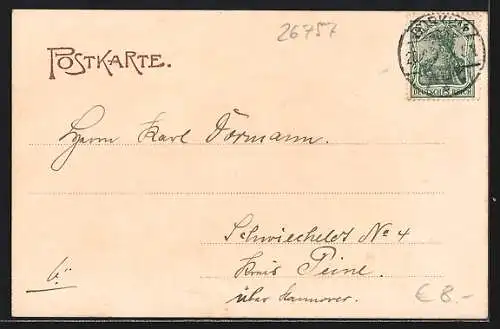 26757
POSTKARTE.
DEUTSCHES REICH
Herrn Karl Dörmann.
Schwiecheldt No 4
Kreis Peine.
über Hannover.
€ 8.-